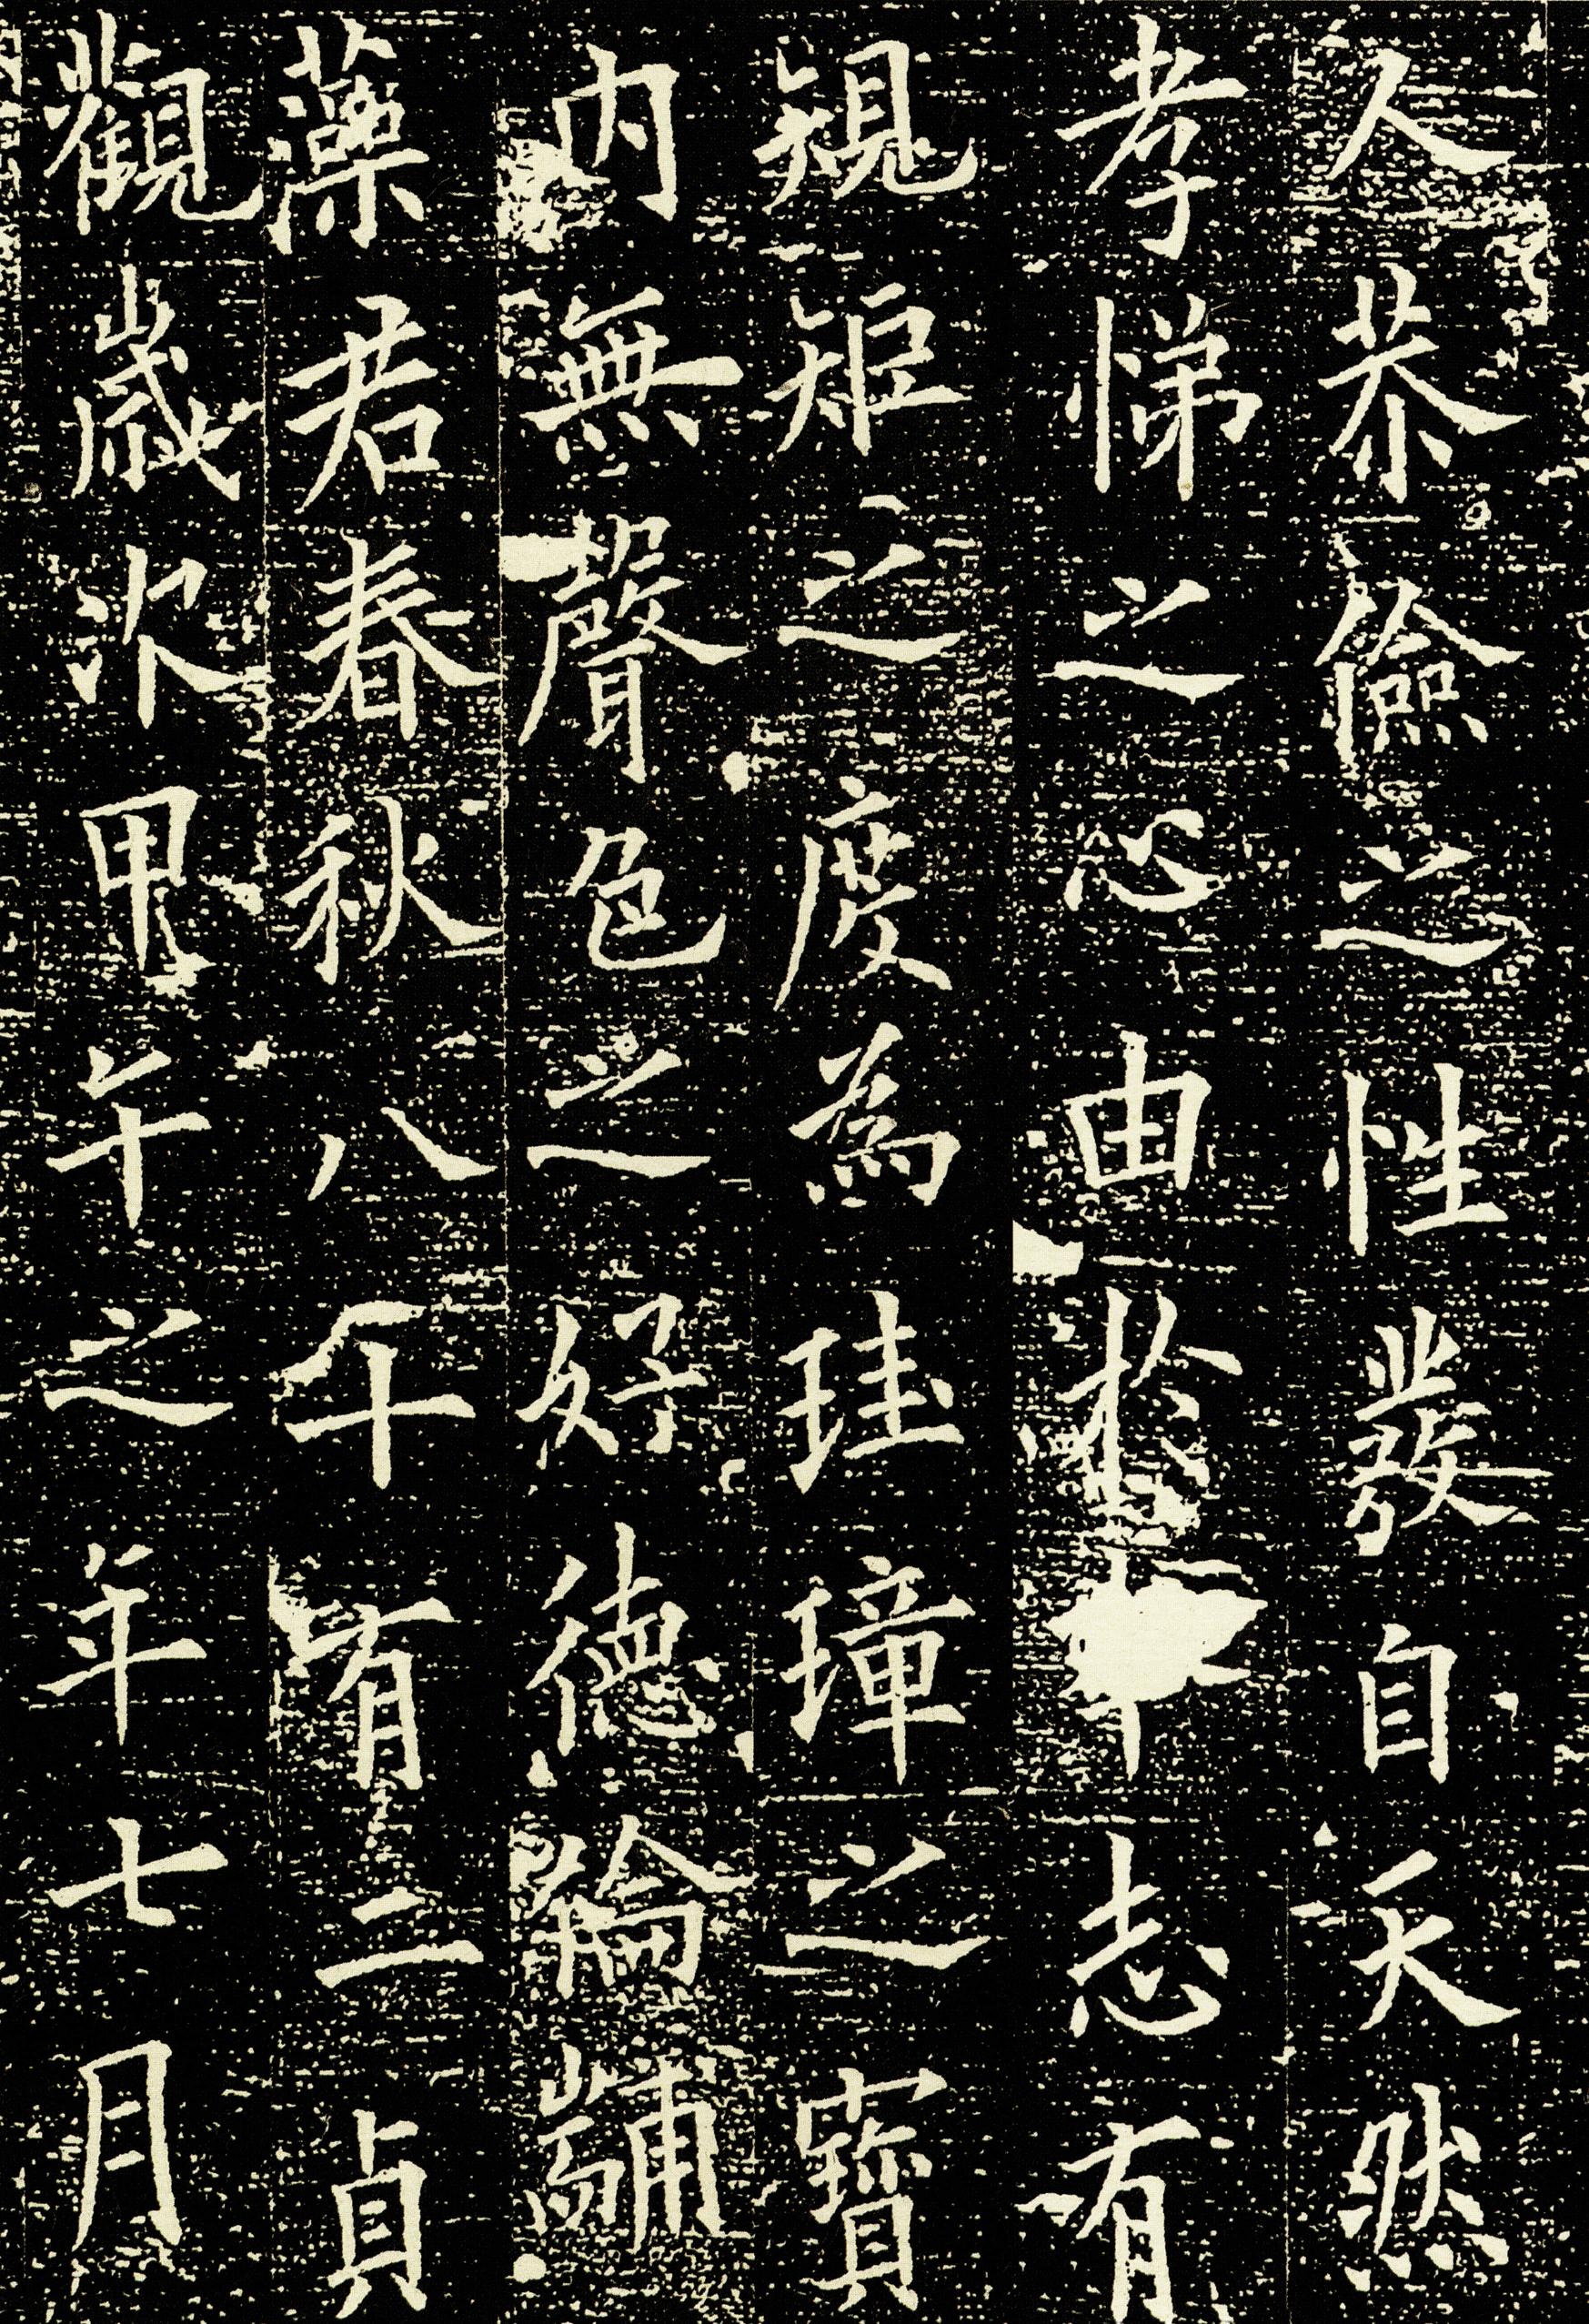 人恭儉之性發自天然
孝悌之心由於志有
規矩之度為珪璋之寶
内無聲色之好德綸黼
藻君春秋八十有二貞
觀歲次甲午之年七月